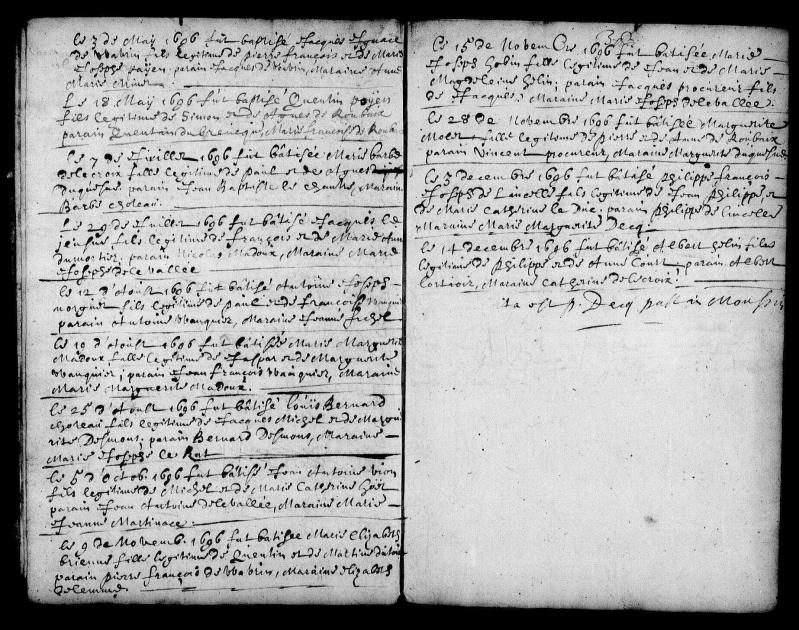 le 3 de May 1696 fut baptisé Jacques Ignace
de Wavrin fils legitime de pierre françois et de Marie
Joseph payen, parain Jacques de Wavrin, Maraine Anne
Marie
Le 18 May 1696 fut baptisé Quentin payen
fils legitime de Simon et de Agnes de Roubaix
parain Quentin du Marie francoise de Roub
le 7 de Juillet 1696 fut bâtisée Marie barbe
delecroix fille legitime de paul et de Agnes
Duquesne parain Jean Baptiste le Maraine
Barbe choteau.
le 29 de Juillet 1696 fut bâtisé Jacques le
fils legitime de françois et de Marie Ann
dumortier, parain Nicolas Madoux, Maraine Marie
Joseph de le vallée
le 12 d'Aoust 1696 fut bâtisé Antoine Joseph
fils legitime de paul et de françoise Wauquier
parain Antoine Wauquier, Maraine Jeanne
le 19 d'Aoust 1696 fut bâtisée Marie Marguerite
Madoux fille legitime de Jaspar et de Marguerite
Wauquier, parain Jean françois Wauquier, Maraine
Marie Marguerite Madoux.
le 25 d'Aoust 1696 fut bâtisé Louis Bernard
choteau fils legitime de Jacques Michel et de Margue
rite Desmons, parain Bernard Desmons, Maraine
Marie Joseph le Rat
le 5 d'Octob. 1696 fut bâtisé Jean Antoine
fils legitime de Michel et de Marie Catherine
parain Jean Antoine delevallée, Maraine Marie
Jeanne Martinace.
le 9 de Novemb. 1696 fut batisée Marie Elizabeth
brienne fille legitime de Quentin et de Martine
parain pierre françois de Wavrin, Maraine elizabeth
le 15 de Novembre 1696 fut bâtisée Marie
Joseph fille legitime de Jean et de Marie
Magdeleine helin; parain Jacques procureur fils
de Jacques, Maraine Marie Joseph delevallée.
le 28 de Novembre 1696 fut bâtisée Marguerite
fille legitime de pierre et de Anne de Roubaix
parain Vincent procureur, Maraine Marguerite duquesne
le 3 decembre 1696 fut bâtisé philippe françois
Joseph de Lincelle fils legitime de Jean philippe, et
de Marie Catherine le Duc, parain philippe de Lincelles
Maraine Marie Marguerite Decq.
le 14 decembre 1696 fut bâtisé Albert helin fils
legitime de philippe et de Anne Court parain Albert
Maraine Catherine delecroix.
ita est p. Decq past in